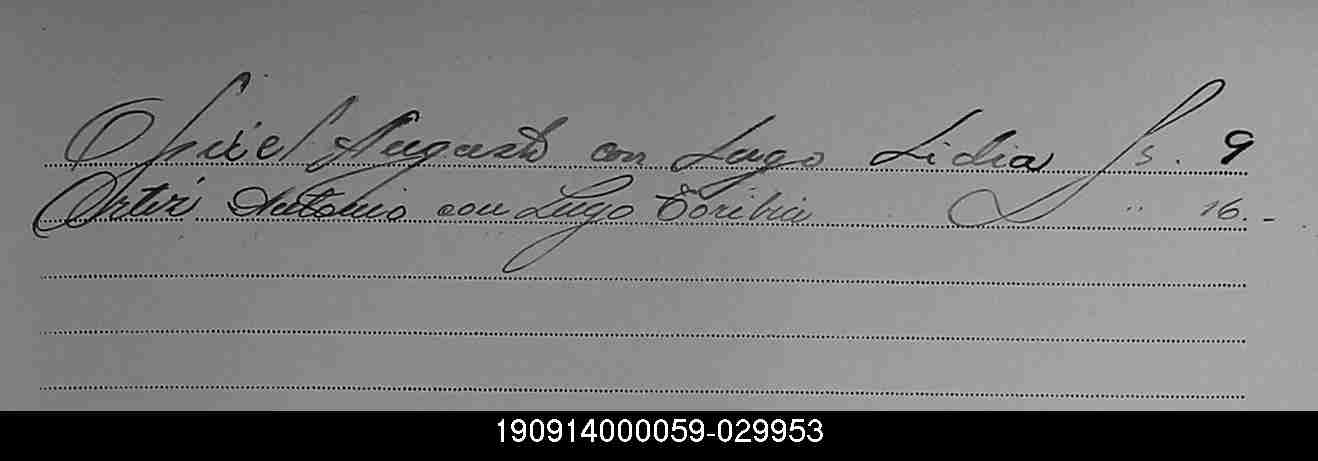 Augusto con Lugo Lidia Fs. 9
Antonio con Lugo Toribia " 16.-
190914000059-029953